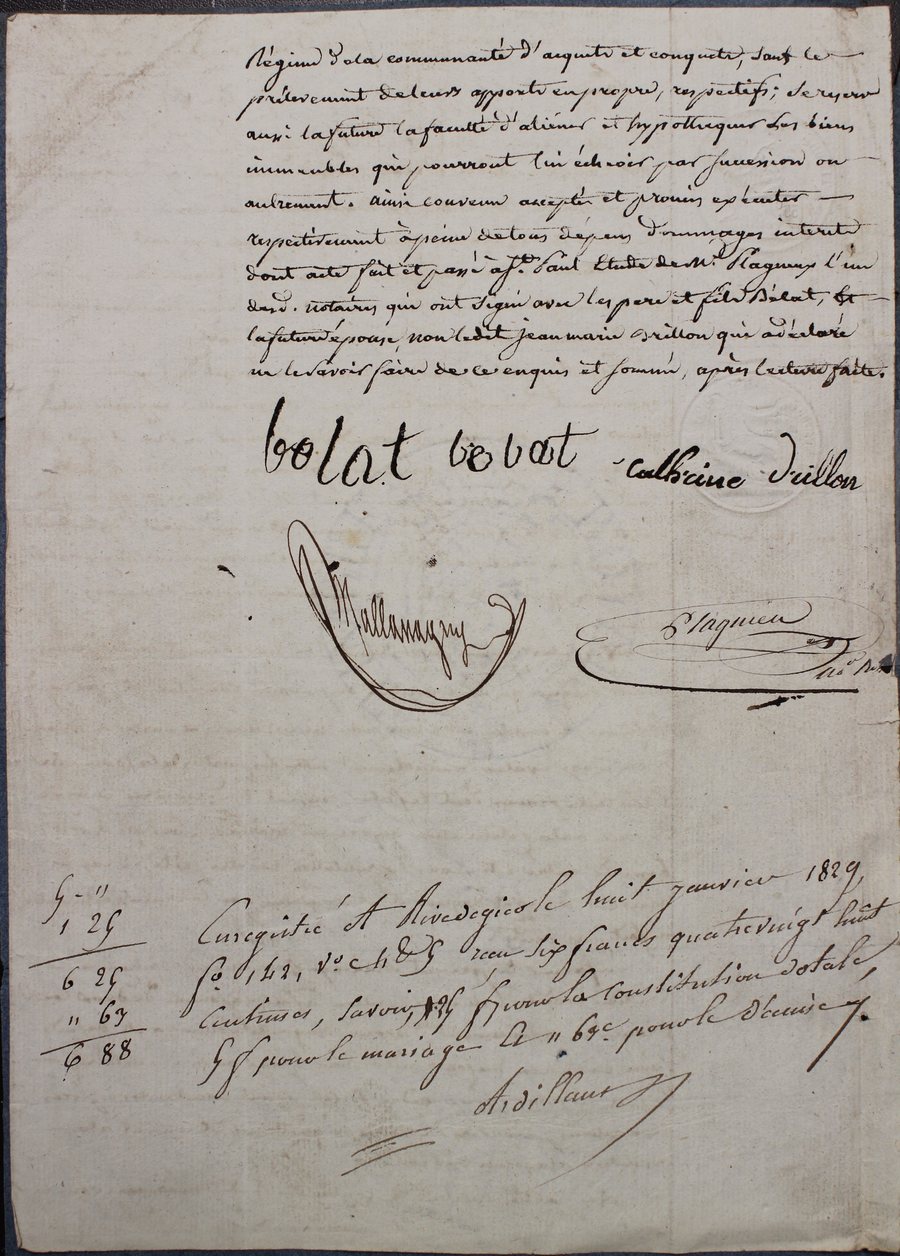 Régime de la communauté d'acquets et conquets, sauf le
prélevement de leurs apports en propre, respectifs; se reserve
aussi la future la faculté d'aliéner et hypothequer les biens
immeubles qui pourront lui échoir par succession ou
autrement. ainsi convenu accepté et promis exécuter
respectivement à peine de tous dépens dommages interets
dont acte fait et passé à St. Paul Etude de Me. Plagneux l'un
desd. notaires qui ont signé avec les pere et fils Bélat, Et
la future épouse, non ledit jean marie Drillon qui a déclaré
ne le savoir faire de ce enquis et sommé, après lecture faite.
belat belat Catherine Drillon
Mallanagny
Plagnieu
no. Ro.
5 - "
1 25
6 25
" 63
6 88
Enregistré à Rivedegier le huit janvier 1829,
fo. 142, vo. c 4 & 5 reçu six francs quatrevingt huit
centimes, savoir, 1 25 f pour la constitution dotale,
5 f pour le mariage Et " 63c pour le dixième
Ardillaus